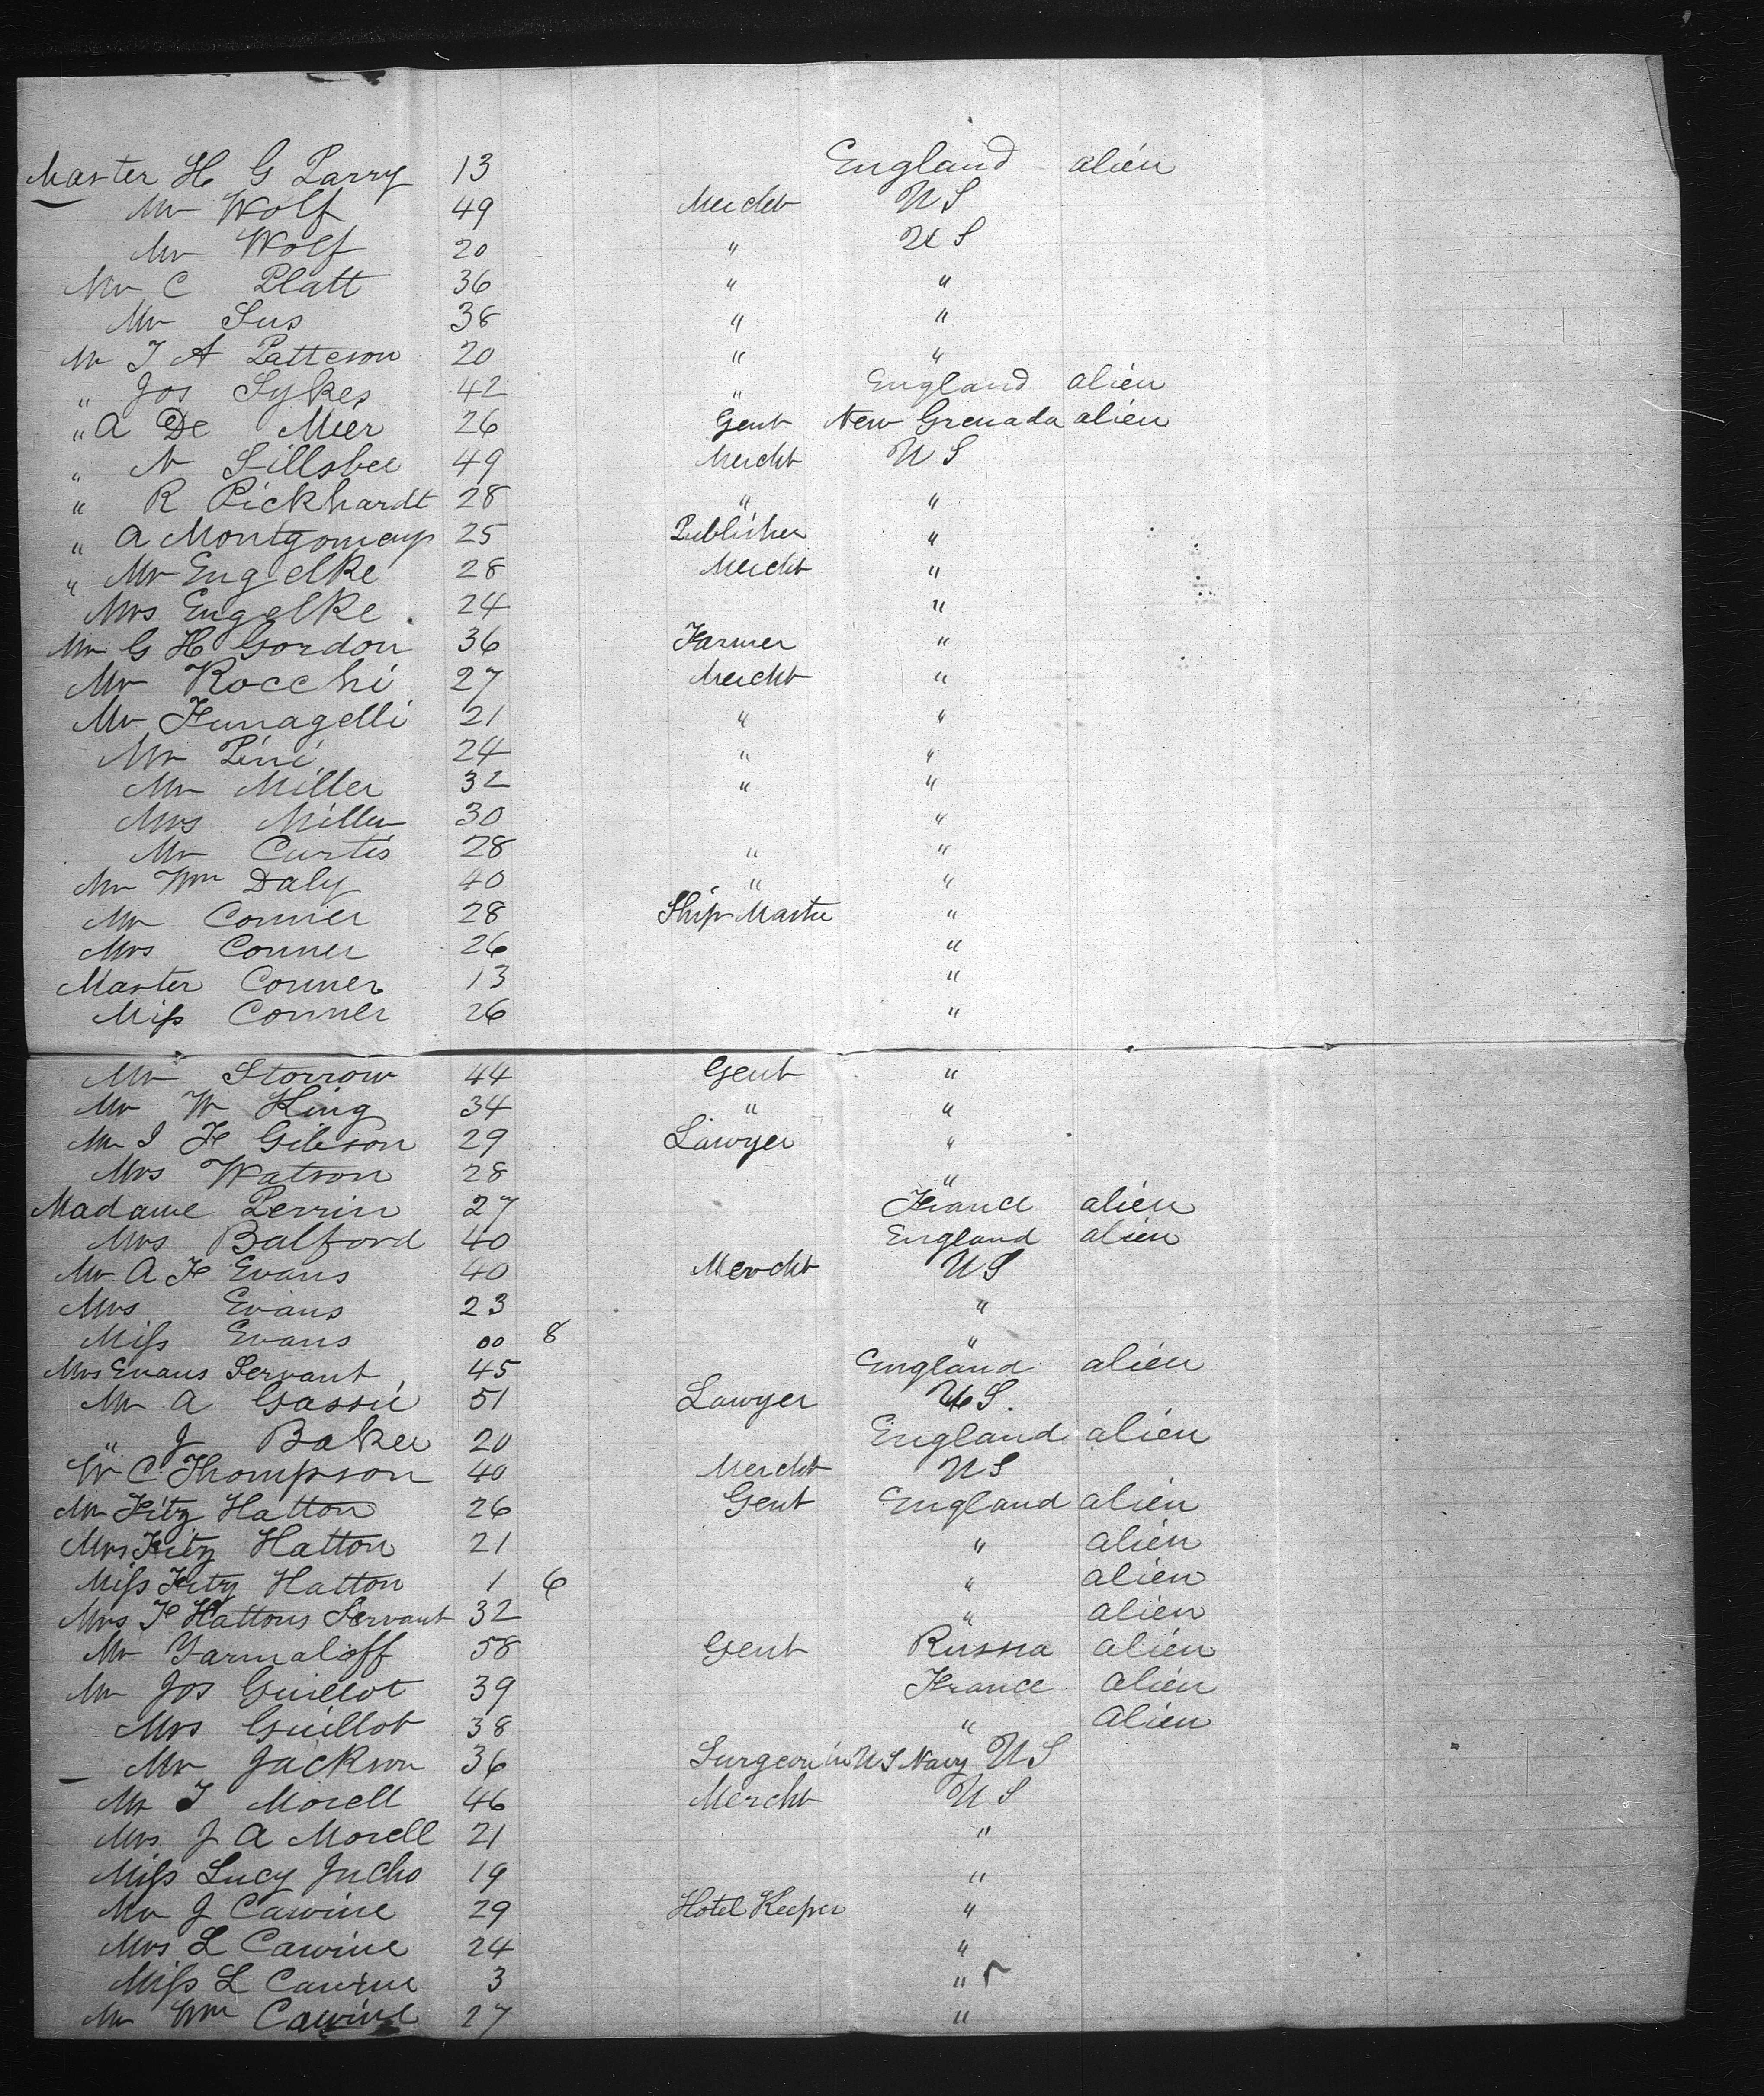 Master H G Parry 13 England alien
Mr Wolf 49 Mercht U S
Mr Wolf 20 " U S
Mr C Platt 36 " "
Mr Sus 38 " "
Mr T A Patteson 20 " "
" Jos Sykes 42 " England alien
" A De Mier 26 Gent New Grenada alien
" N Sillsbee 49 Mercht U S
" R Pickhardt 28 " "
" A Montgomery 25 Publisher "
" Mr Engelke 28 Mercht "
Mrs Engelke 24 "
Mr G H Gordon 36 Farmer "
Mr Rocchi 27 Mercht "
Mr Funagelli 21 " "
Mr Pini 24 " "
Mr Miller 32 " "
Mrs Miller 30 "
Mr Curtis 28 " "
Mr Wm Daly 40 " "
Mr Conner 28 Ship Master "
Mrs Conner 26 "
Master Conner 13 "
Miss Conner 26 "
Mr Storrow 44 Gent "
Mr W King 34 " "
Mr I F Gibson 29 Lawyer "
Mrs Watson 28 "
Madame Perrin 27 France alien
Mrs Balford 40 England alien
Mr A F Evans 40 Mercht U S
Mrs Evans 23 "
Miss Evans 00 8 "
Mrs Evans Servant 45 England alien
Mr A Gassie 51 Lawyer U S.
" J Baker 20 England alien
W C Thompson 40 Mercht U S
Mr Fitz Hatton 26 Gent England alien
Mrs Fitz Hatton 21 " alien
Miss Fitz Hatton 1 6 " alien
Mrs F Hattons Servant 32 " alien
Mr Yarmaloff 58 Gent Russia alien
Mr Jos Guillot 39 France alien
Mrs Guillot 38 " alien
Mr Jackson 36 Surgeon in U S Navy U S
Mr T Morell 46 Mercht U S
Mrs J A Morell 21 "
Miss Lucy Jucho 19 "
Mr J Cawine 29 Hotel Keeper "
Mrs L Cawine 24 "
Miss L Cawine 3 "
Mr Wm Cawine 27 "